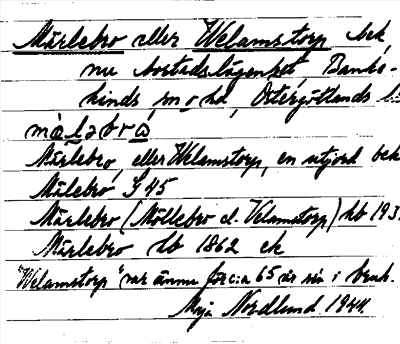 Märlebro eller Welamstorp bek,
nu bostadslägenhet, Banke-
kinds sn o hd, Östergötlands l
Märlebro, eller Welamstorp, en utjord bek
Mälebro S 45
Märlebro (Möllebro el. Velamstorp) hb 193
Märlebro hb 1862 ek
"Welamstorp" var ännu för c:a 65 år sen i bruk.
Maja Nordlund 1944.